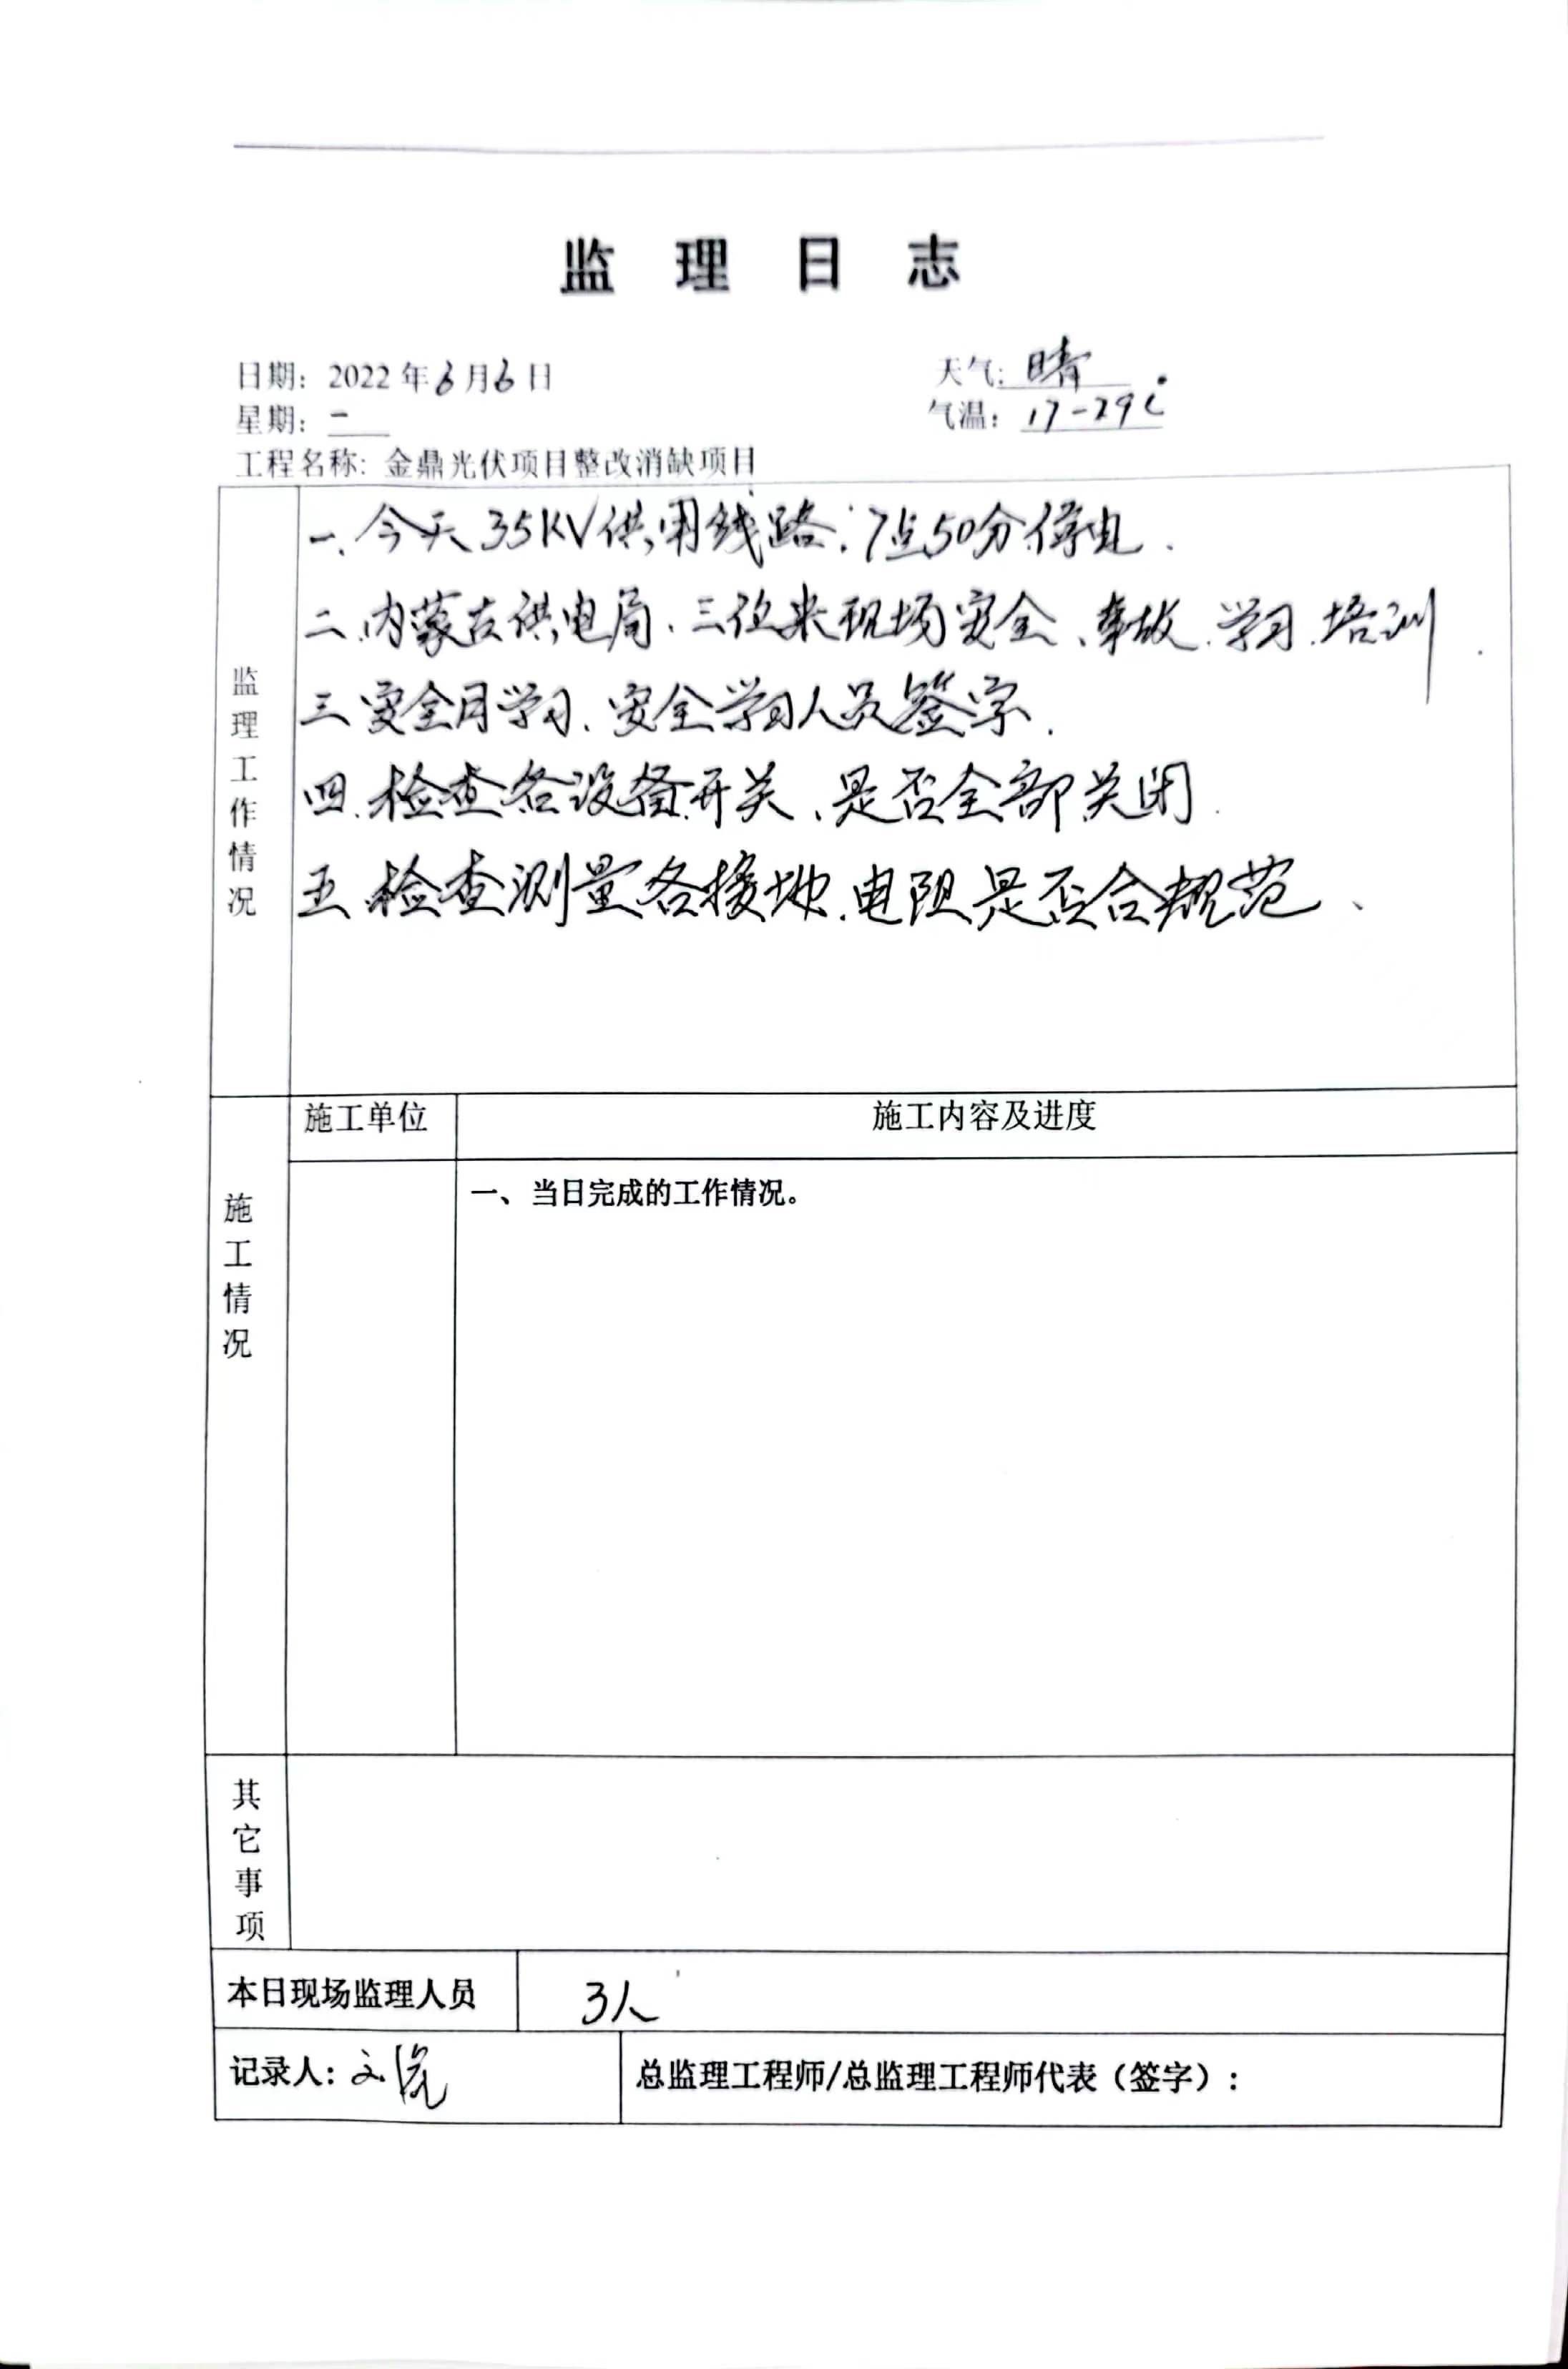 监理日志
日期：2022年6月6日
天气：晴
星期：一
气温：17-29℃
工程名称：金鼎光伏项目整改消缺项目
监理工作情况
一、今天35KV供用线路：7点50分停电.
二、内蒙古供电局、三位来现场安全、事故、学习、培训.
三、安全月学习、安全学习人员签字.
四、检查各设备开关、是否全部关闭.
五、检查测量各接地、电阻是否合规范、
施工单位
施工内容及进度
施工情况
一、当日完成的工作情况。
其它事项
本日现场监理人员
3人
记录人：
总监理工程师/总监理工程师代表（签字）：